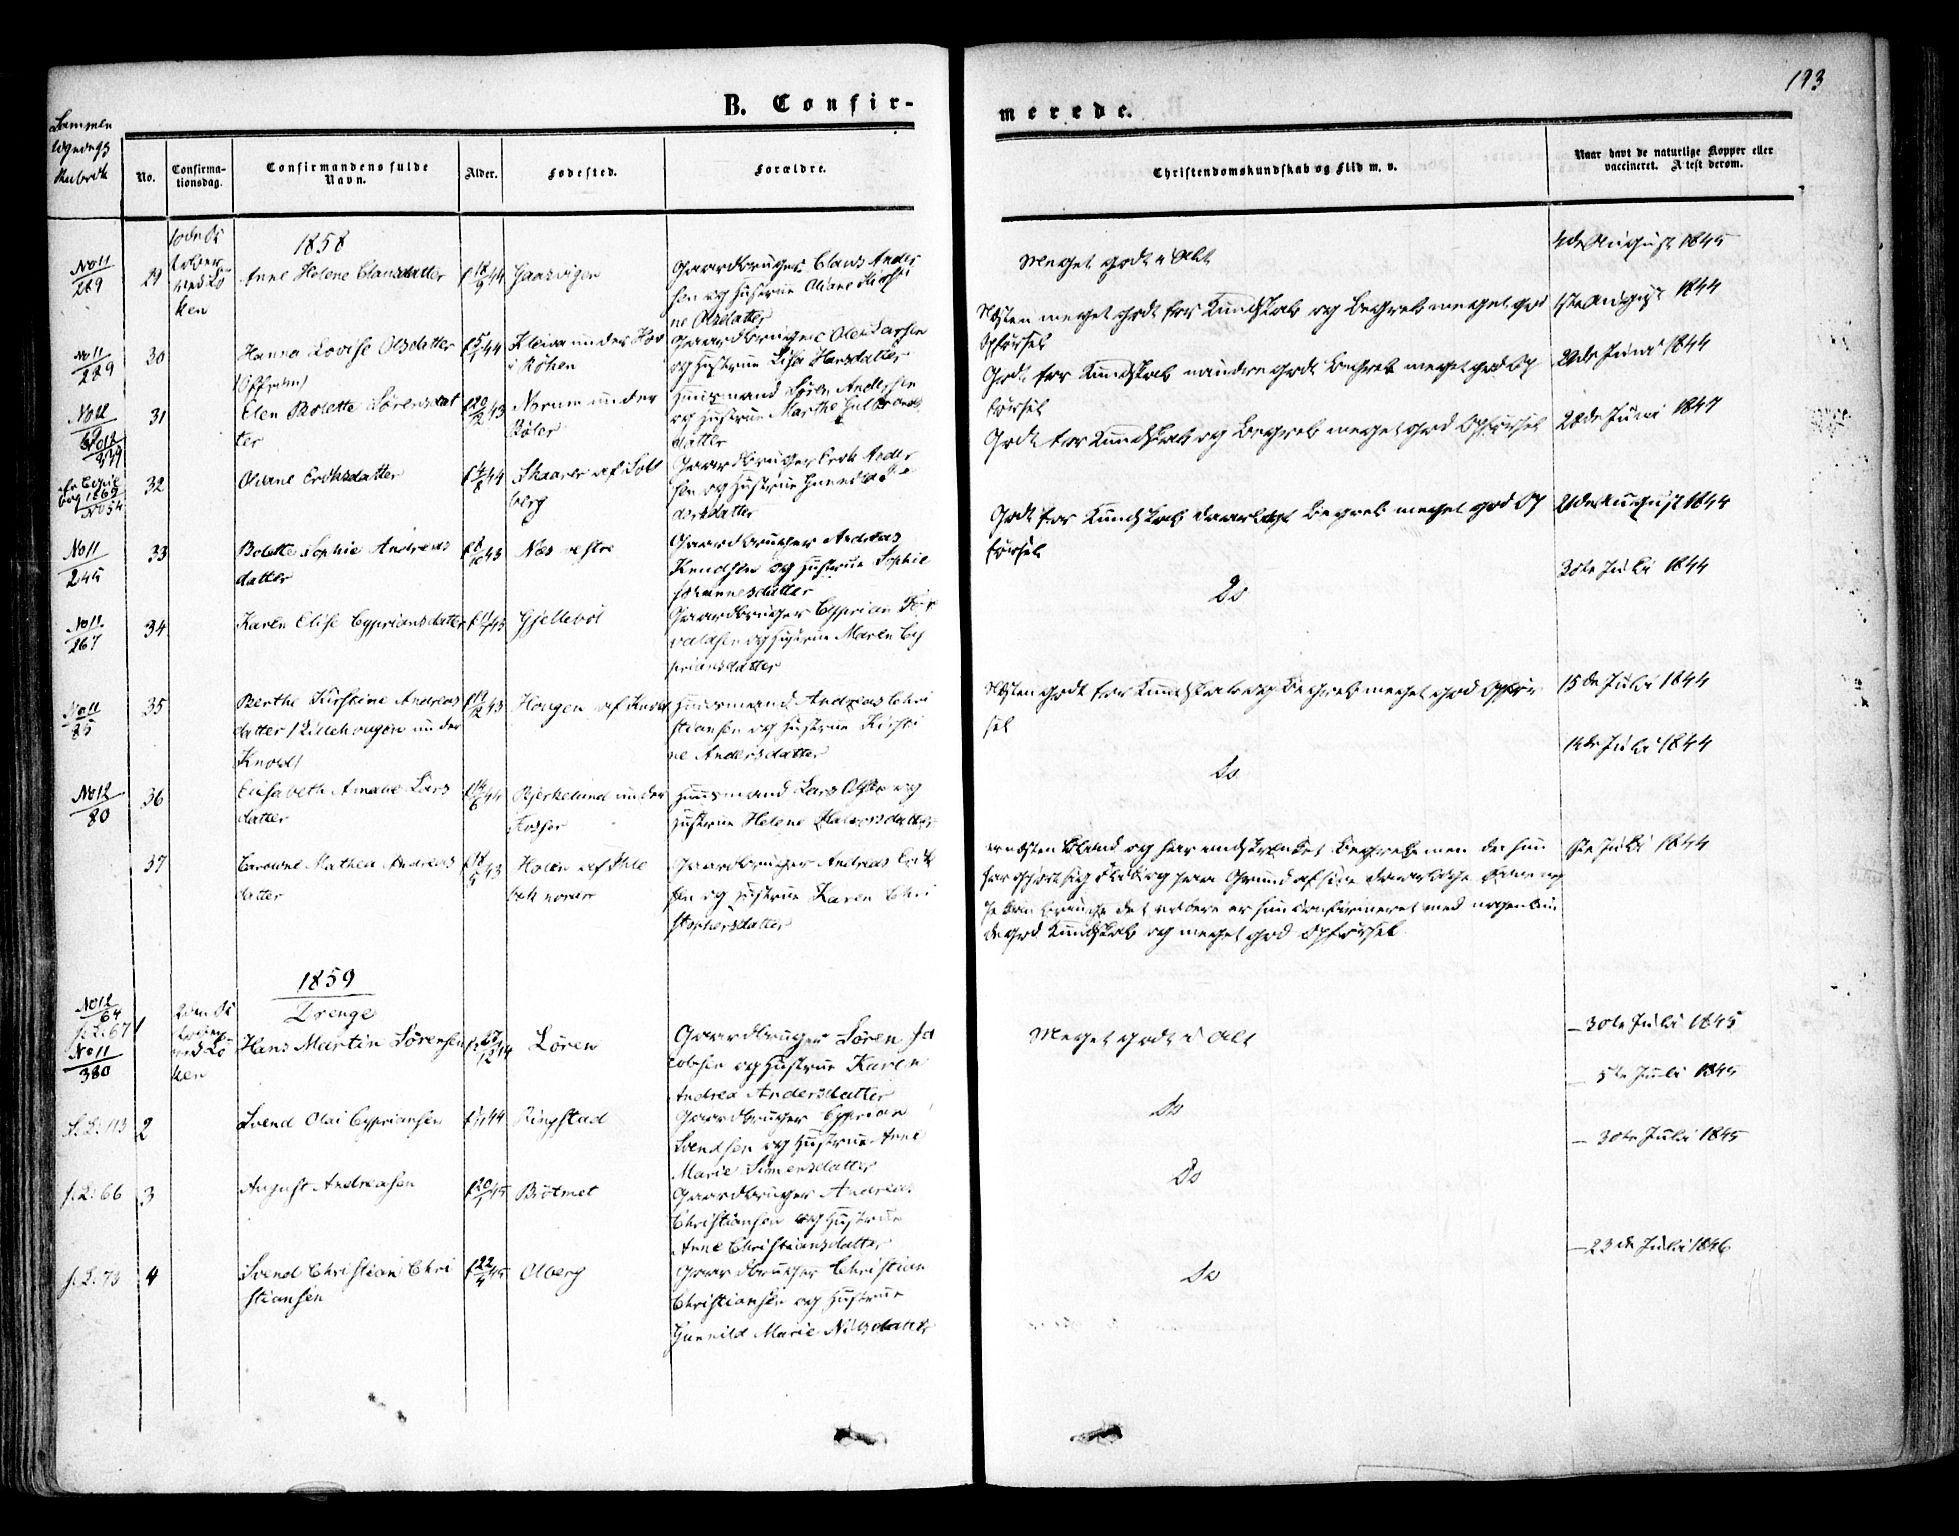 193
B. Confir-
merede.
Sammen
lignings
Rubrik
No.
Confirma-
tionsdag.
Confirmandens fulde
Navn.
Alder.
Fødested.
Forældre.
Christendomskundskab og Flid m. v.
Naar havt de naturlige Kopper eller
vaccineret. Atest derom.
1858
No 11
269
29
10de Oc
tober
ved Lö
ken
Anne Helene Clausdatter
f 18/9 44
Gaasvigen
Gaardbruger Claus Ander
sen og Hustrue Oliane Kirsti
ne Olsdatter
Meget godt i Alt
4de August 1845
No 11
289
30
Hanna Lovise Olsdatter
f 5/1 44
i Röhen
Gaardbruger Ole Larsen
og Hustrue Lisa Hansdatter
Næsten meget godt for Kundskab og Begreb meget god
Opførsel
August 1844
No 12
31
Elen Bolette Sörensdat
ter
f 20/12 43
Norum under
Böler
Huusmand Sören Andersen
og Hustrue Marthe
datter
Godt for Kundskab mindre godt Begreb meget god Op
førsel
22de Juni 1844
32
Oliane Eriksdatter
f 4/8 44
Skaarer af Sol
berg
Gaardbruger Erik Ander
sen og Hustrue
dersdatter
Godt for Kundskab og Begreb meget god Opførsel
28de Juni 1847
No 11
245
33
Bolette Sophie Andreas
datter
f 8/10 43
Næs østre
Gaardbruger Andreas
Knudsen og Hustrue Sophie
Johannesdatter
Godt for Kundskab daarligt Begreb meget god Op
førsel
21de August 1844
No 11
267
34
Karen Elise Cypriansdatter
Gjellebøl
Gaardbruger Cyprian Tor
valdsen og Hustrue Maren Cy
priansdatter
Do
30te Juli 1844
No 11
85
35
Berthe Kirstine Andreas
datter (Lillehougen under
Knold)
f 17/12 43
Hougen af Knold
Huusmand Andreas Chri
stiansen og Hustrue Kirsti
ne Andersdatter
Næsten godt for Kundskab og Begreb meget god Opfør
sel
15de Juli 1844
No 12
80
36
Elisabeth Amalie Lars
datter
f 14/6 44
Bjerkelund under
Kosser
Huusmand Lars Olsen og
Hustrue Helene Halvorsdatter
Do
14de Juli 1844
37
Caroline Mathea Andreas
datter
f 18/5 43
Holen af Ihle
bek nordre
Gaardbruger Andreas Erik
sen og Hustrue Karen Chri
stophersdatter
er næsten blind og har indskrænket Begreb men da hun
har gjort sig Flid og paa Grund af sine daarlige
de god Kundskab og meget god Opførsel.
Juli 1844
1859
Drenge
No 12
64
S. L. 67
No 11
380
1
2den Oc
tober
ved Lö
ken
Hans Martin Sörensen
f 27/12 44
Lören
Gaardbruger Sören Ja
cobsen og Hustrue Karen
Andrea Andersdatter
Meget godt i Alt
- 30te Juli 1845
S. L. 113
2
Svend Olai Cypriansen
Ringstad
Gaardbruger Cyprian
Svendsen og Hustrue Anne
Marie Simensdatter
Do
- 5te Juli 1845
S. L. 66
3
August Andreasen
f 20/1 45
Bråtmet
Gaardbruger Andreas
Christiansen og Hustrue
Anne Christiansdatter
Do
- 30te Juli 1845
S. L. 73
4
Svend Christian Chri
stiansen
f 22/4 45
Olberg
Gaardbruger Christian
Christiansen og Hustrue
Gunnild Marie Nilsdatter
Do
- 23de Juli 1846